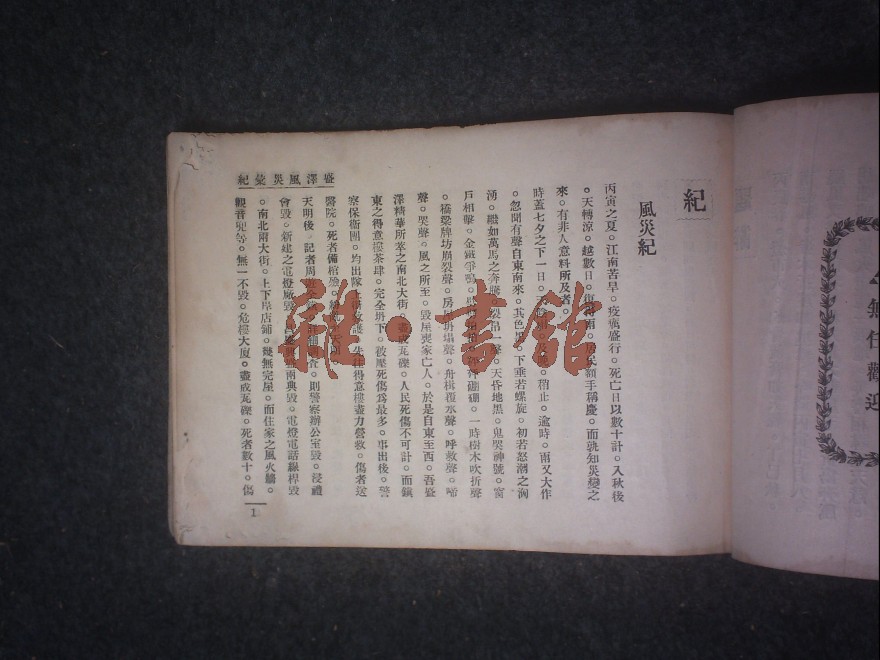 無任歡迎
紀
風災紀
丙寅之夏。江南苦旱。疫癘盛行。死亡日以數十計。入秋後
。天轉涼。越數日。復得雨。居民額手稱慶。而孰知災變之
來。有非人意料所及者。
時蓋七夕之下一日。天 稍止。逾時。雨又大作
。忽聞有聲自東南來。其色 下垂若螺旋。初若怒潮之洶
湧。繼如萬馬之奔騰。裂帛一聲。天昏地黑。鬼哭神號。窗
戶相擊。金鐵爭鳴。 硼硼。一時樹木吹折聲
。橋樑牌坊崩裂聲。房屋坍塌聲。舟楫覆水聲。呼救聲。啼
聲。哭聲。風之所至。毀屋喪家亡人。於是自東至西。吾盛
澤精華所萃之南北大街。盡成瓦礫。人民死傷不可計。而鎮
東之得意樓茶肆。完全坍下。被壓死傷爲最多。事出後。警
察保衞團。均出隊上街救護。先往得意樓盡力營救。傷者送
醫院。死者備棺殮。
天明後。記者周遊全鎮。詳細調查。則警察辦公室毀。浸禮
會毀。新建之電燈廠毀。 典 南典毀。電燈電話線桿毀
。南北兩大街。上下岸店鋪。幾無完屋。而住家之風火牆。
觀音兜等。無一不毀。危樓大厦。盡成瓦礫。死者數十。傷
盛澤風災彙紀
1
雜·書館